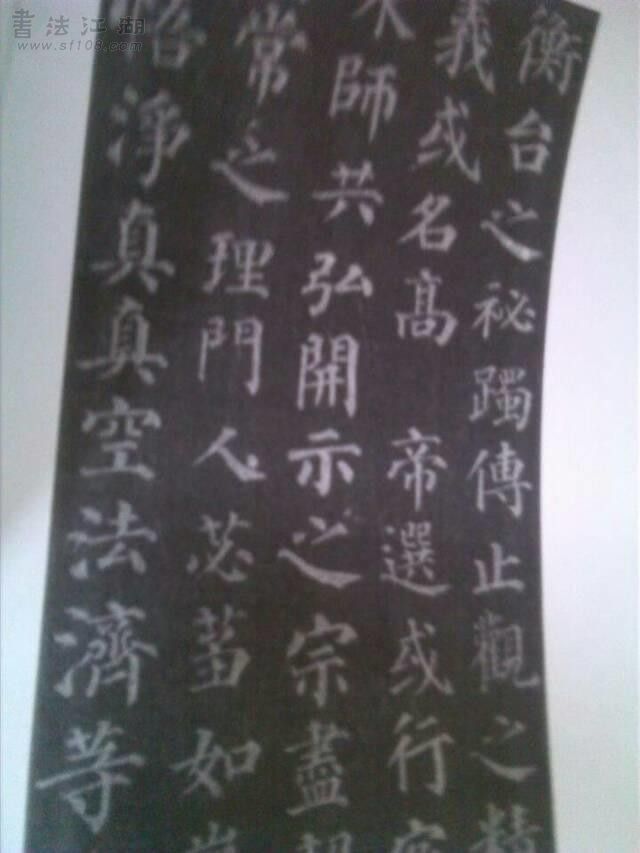 書法江湖
www.sf108.com
衡台之祕躅傳止觀之精
義或名高 帝選或行
師共弘開示之宗盡
常之理門人苾蒭如
淨真真空法濟等